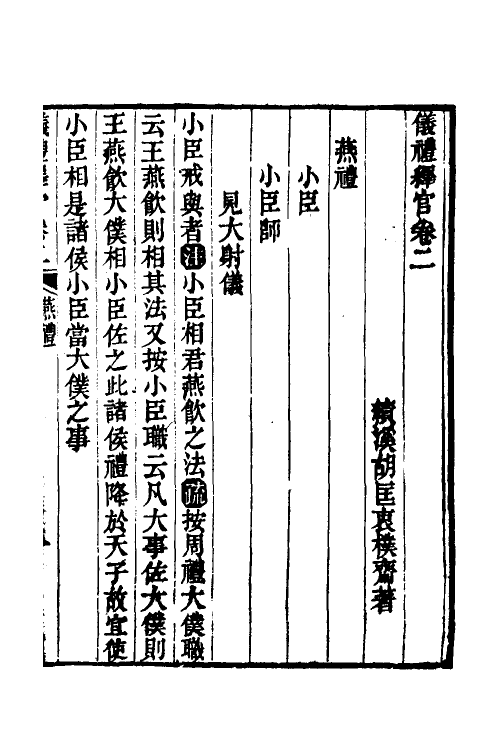 儀禮釋官卷二
績溪胡匡衷樸齋著
燕禮
小臣
小臣師
見大射儀
小臣戒與者注小臣相君燕飲之法疏按周禮大僕職
云王燕飲則相其法又按小臣職云凡大事佐大僕則
王燕飲大僕相小臣佐之此諸侯禮降於天子故宜使
小臣相是諸侯小臣當大僕之事
燕禮